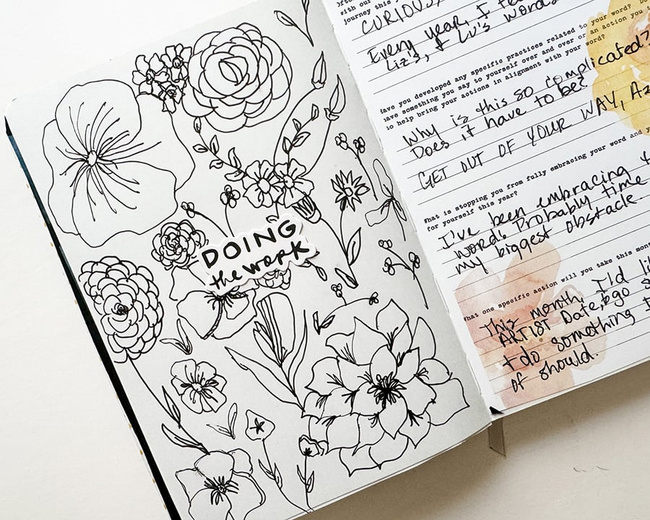 DOING
the work
journey this
with our
CURIOUS
Every year, I
Liz's, & Liv's words
Have you developed any specific practices related to your word? Do
have something you say to yourself over and over or an action you t
to help bring your actions in alignment with your word?
Why is this so complicated?
Does it have to be?
GET OUT OF YOUR WAY, Az
What is stopping you from fully embracing your word and y
for yourself this year?
I've been embracing
word. Probably time
my biggest obstacle.
What one specific action will you take this mont
This month, I'd li
ARTIST Date, go s
+ do something I
of should.